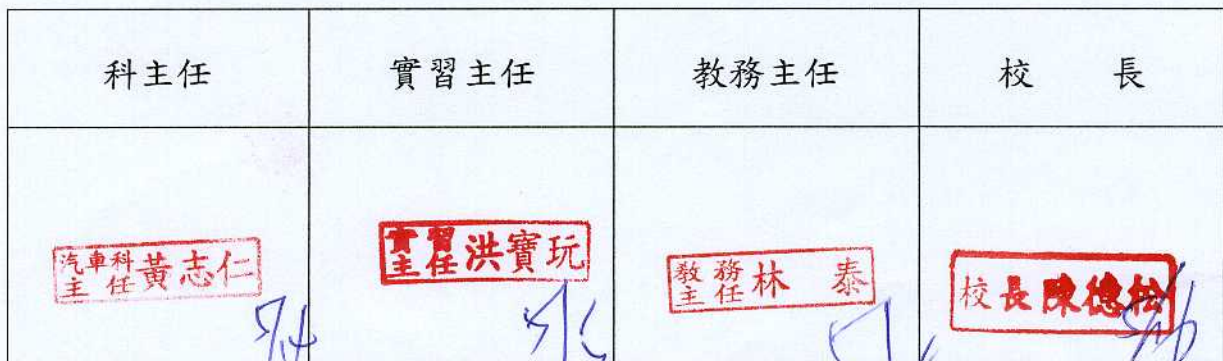 科主任 實習主任 教務主任 校 長
汽車科主任 黃志仁
實習主任 洪寶玩
教務主任 林 泰
校長 陳德松
5/14